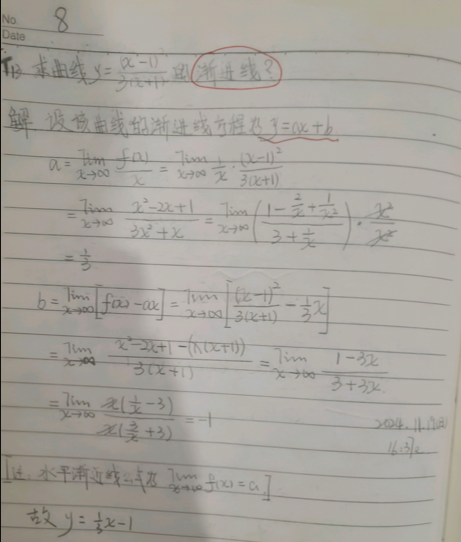 No.
8
Date
求曲线 y = (x-1)² / 3(x+1) 的渐进线?
解 设该曲线的渐进线方程为 y=ax+b
a = lim x→∞ f(x)/x = lim x→∞ 1/x · (x-1)²/3(x+1)
= lim x→∞ x²-2x+1 / 3x²+x = lim x→∞ (1 - 2/x + 1/x² / 3 + 1/x) · x²/x²
= 1/3
b = lim x→∞ [f(x)-ax] = lim x→∞ [(x-1)²/3(x+1) - 1/3 x]
= lim x→∞ x²-2x+1-(x(x+1)) / 3(x+1) = lim x→∞ 1-3x / 3+3x
= lim x→∞ x(1/x - 3) / x(3/x + 3) = -1
2024.11.
16:37
[注. 水平渐近线公式为 lim x→∞ f(x) = a.]
故 y = 1/3 x - 1